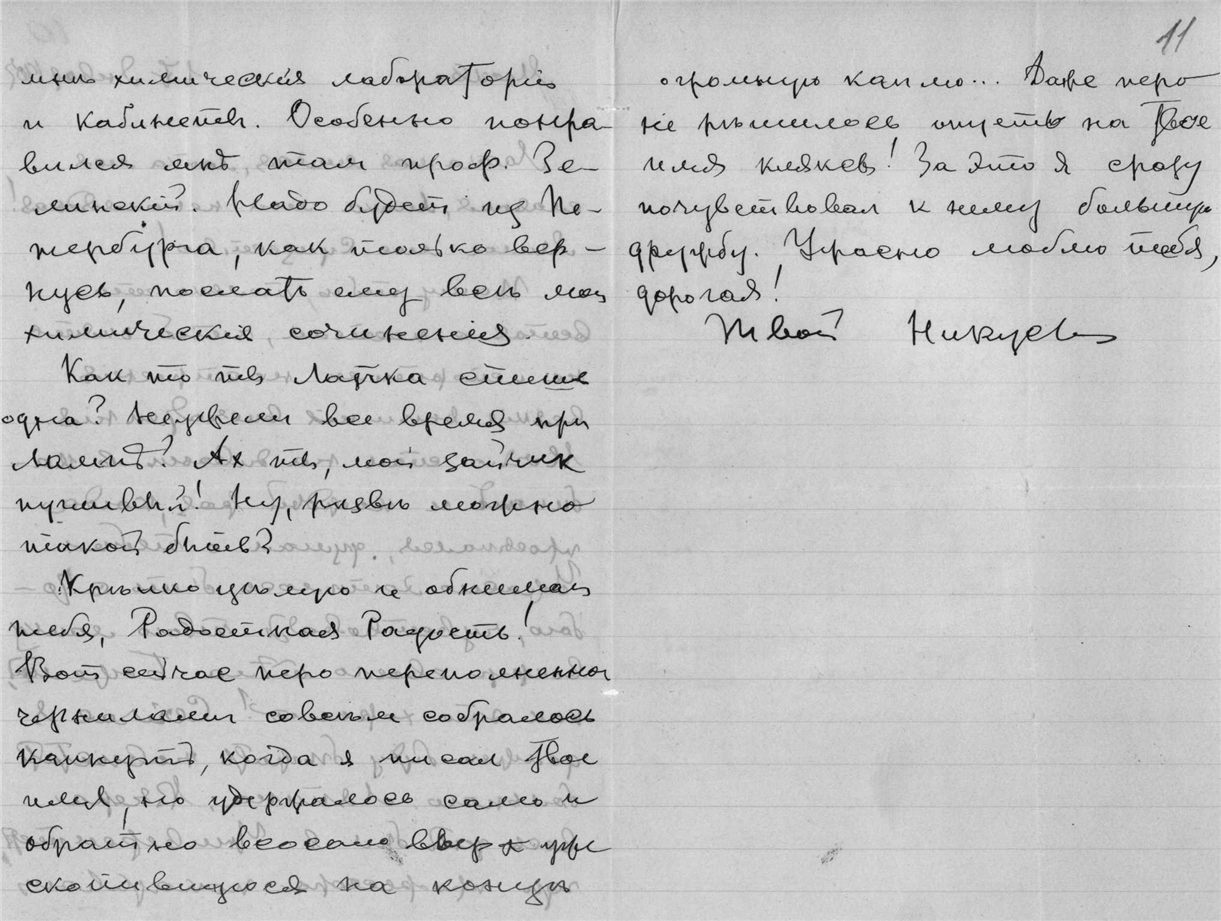 11
мнѣ химическія лабораторіи
и кабинеты. Особенно понра-
вился мнѣ там проф. Зе-
линскій. Надо будет из Пе-
тербурга, как только вер-
нусь, послать ему всѣ мои
химическія сочиненія.
Как то ты Лапка спишь
одна? Неужели все время при
лампѣ? Ах ты, мой зайчик
пугливый! Ну, развѣ можно
такой быть?
Крѣпко цѣлую и обнимаю
тебя, Радостная Радость!
Вот сейчас перо переполненное
чернилами совсѣм собралось
капнуть, когда я писал Твое
имя, но удержалось само и
обратно всосало вверх уже
скопившуюся на концѣ
огромную каплю... Даже перо
не рѣшилось опустить на Твое
имя кляксы! За это я сразу
почувствовал к нему большую
дружбу. Ужасно люблю тебя,
дорогая!
Твой Никусь